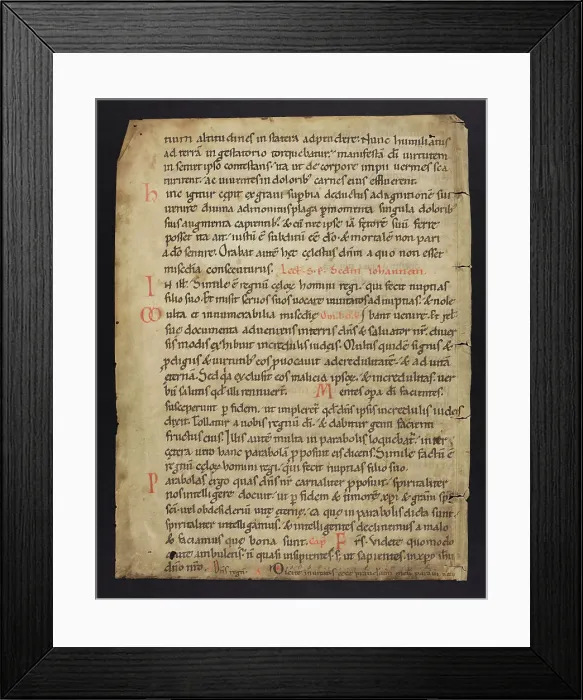 tium altitudines in statera adpendere. Nunc humiliatus
ad terrā in gestatorio torquebatur. manifestā dī virtutem
in semet ipso contestans. ita ut de corpore impii vermes sca
turirent. ac viventis in dolorib; carnes eius effluerent.
hinc igitur cepit ex gravi supbia deductus ad agnitionē sui
venire divina admonitus plaga p momenta singula dolorib;
suis augmenta capientib; & cū nec ipse iā fetorē suū ferre
posset ita ait. iustū ē subditū eē dō. & mortalē non paria
dō sentire. Orabat autē hec scelestus dnm a quo non esset
misedia consecuturus. Lect. s. e. Scdm iohannem.
In ill. Simile ē regnū celoꝝ homini regi. qui fecit nuptias
filio suo. Et misit servos suos vocare invitatos ad nuptias. & nole
bant venire. Et rel.
Multa et innumerabilia misedie
suę documenta adventus in terris dns & salvator nr. diver
sis modis exhibuit incredulis iudeis. Multis quidē signis &
pdigiis & virtutib; eos pvocavit ad credulitatē. & ad vitā
ęternā. Sed qa exclusit eos malicia ipsoꝝ. & incredulitas. ver
bū salutis qd illi renuert. Mentes opa dī facientes.
susceperunt p fidem. ut impleret qd dns ipsis incredulis iudeis
dixit. Tolletur a nobis regnū dī. & dabitur genti facienti
fructus eius. Illis autē multa in parabolis loquebat. inter
cętera uno hanc parabolā pposuit eis dicens. Simile factū ē
regnū celoꝝ homini regi. qui fecit nuptias filio suo.
Parabolas ergo quas dns nr carnaliter pposuit. spiritaliter
nos intelligere docuit. ut p fidem & timorē xpi. & gram sps
sci. vel ob desideriū vitę ęternę. ea que in parabolis dicta sunt.
spiritaliter intelligamus. & intelligentes declinemus a malo
& faciamus que bona sunt. Cap. Frs. Videte quomodo
caute ambuletis. n quasi insipientes. s; ut sapientes. in xpo ihu
dno nro.